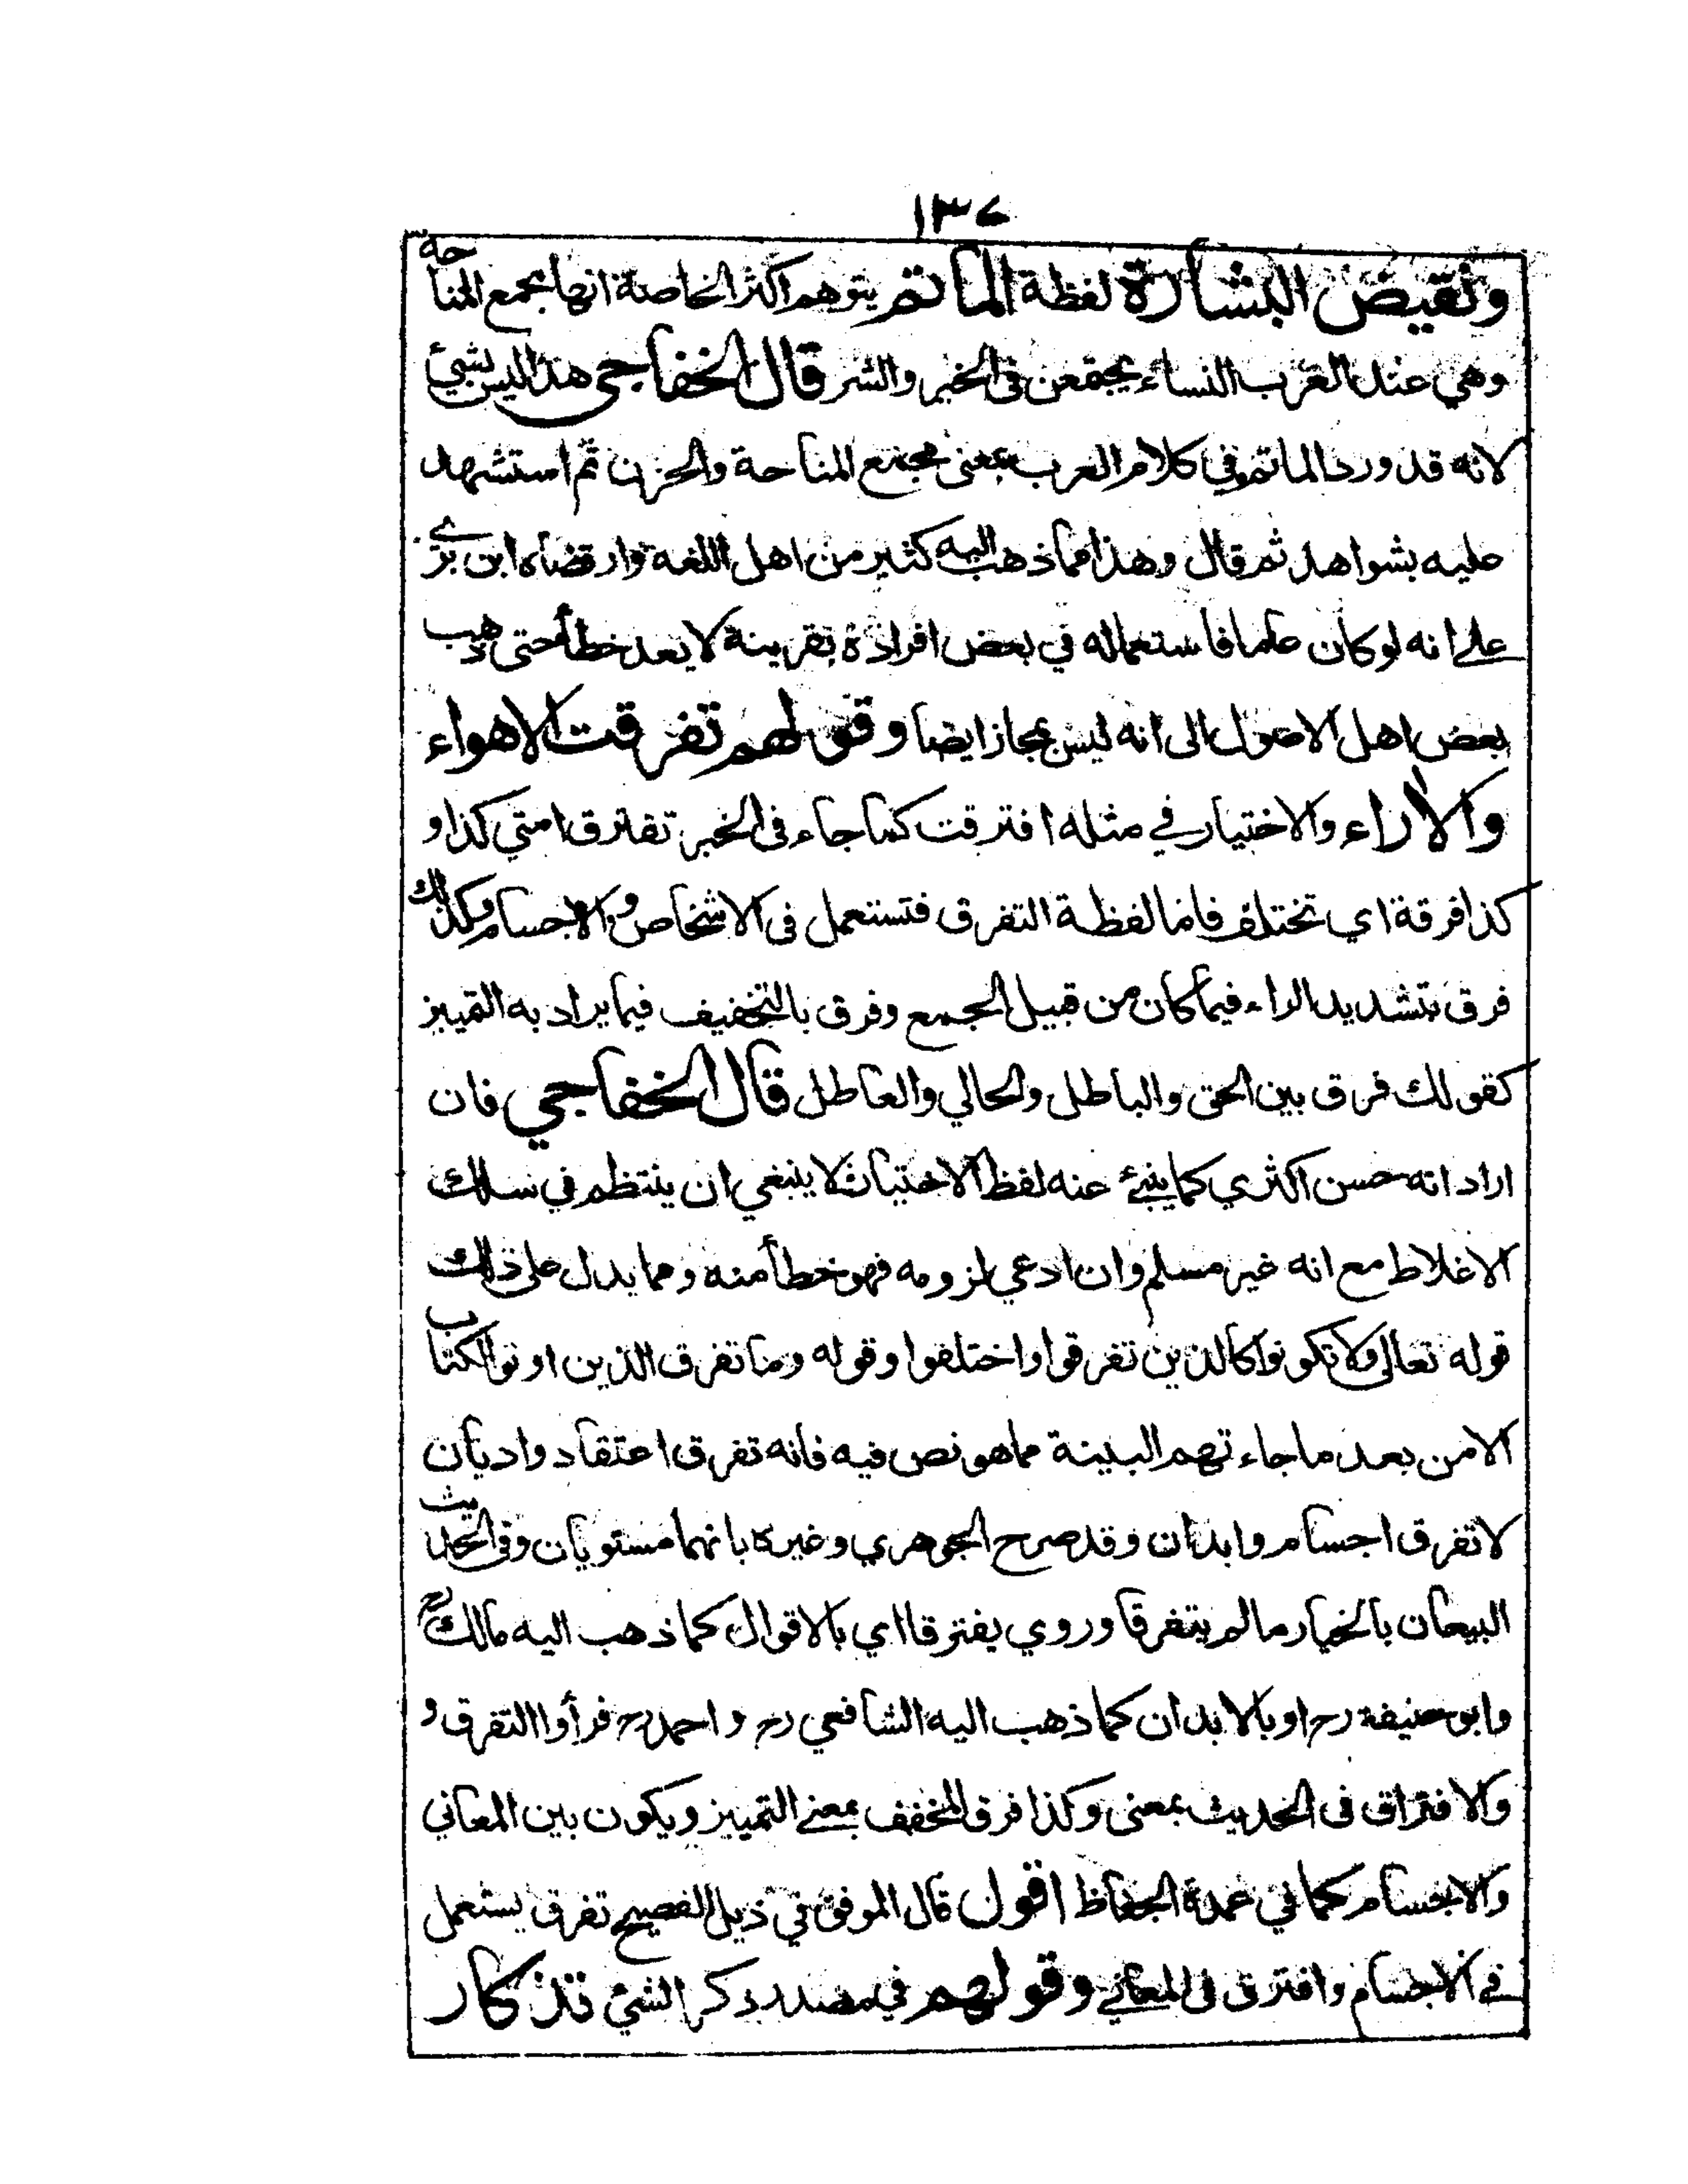 ١٣٧
ونقيض البشارة لفظة المأتم يتوهم اكثر الخاصة انها مجمع المناحة
وهي عند العرب النساء يجتمعن في الخير والشر قال الخفاجي هذا ليس بشيئ
لانه قد ورد الماتم في كلام العرب بمعنى مجتمع المناحة والحزن ثم استشهد
عليه بشواهد ثم قال وهذا مما ذهب اليه كثير من اهل اللغة وارتضاه ابن بري
على انه لو كان عاما فاستعماله في بعض افراده بقرينة لا يعد خطأ حتى ذهب
بعض اهل الاصول الى انه ليس بمجاز ايضا وقولهم تفرقت الاهواء
والأراء والاختيار في مثله افترقت كما جاء في الخبر تفترق امتي كذا و
كذا فرقة اي تختلف فاما لفظة التفرق فتستعمل في الاشخاص والاجسام وكذلك
فرق بتشديد الراء فيما كان من قبيل الجمع وفرق بالتخفيف فيما يراد به التمييز
كقولك فرق بين الحق والباطل والحالي والعاطل قال الخفاجي فان
اراد انه حسن اكثري كما ينبئ عنه لفظ الاختيار لا ينبغي ان ينتظم في سلك
الاغلاط مع انه غير مسلم وان ادعي لزومه فهو خطأ منه ومما يدل على ذلك
قوله تعالى ولا تكونوا كالذين تفرقوا واختلفوا وقوله وما تفرق الذين اوتوا الكتاب
الا من بعد ما جاءتهم البينة مما هو نص فيه فانه تفرق اعتقاد واديان
لا تفرق اجسام وابدان وقد صرح الجوهري وغيره بانهما مستويان وفي الحديث
البيعان بالخيار ما لم يتفرقا وروي يفترقا اي بالاقوال كما ذهب اليه مالك رح
وابو حنيفة رح او بالابدان كما ذهب اليه الشافعي رح و احمد رح فرأوا التفرق و
والافتراق في الحديث بمعنى وكذا فرق المخفف بمعنى التمييز ويكون بين المعاني
والاجسام كما في عمدة الحفاظ اقول قال الموفق في ذيل الفصيح تفرق يستعمل
في الاجسام وافترق في المعاني وقولهم في مصدر ذكر الشئ تذكار